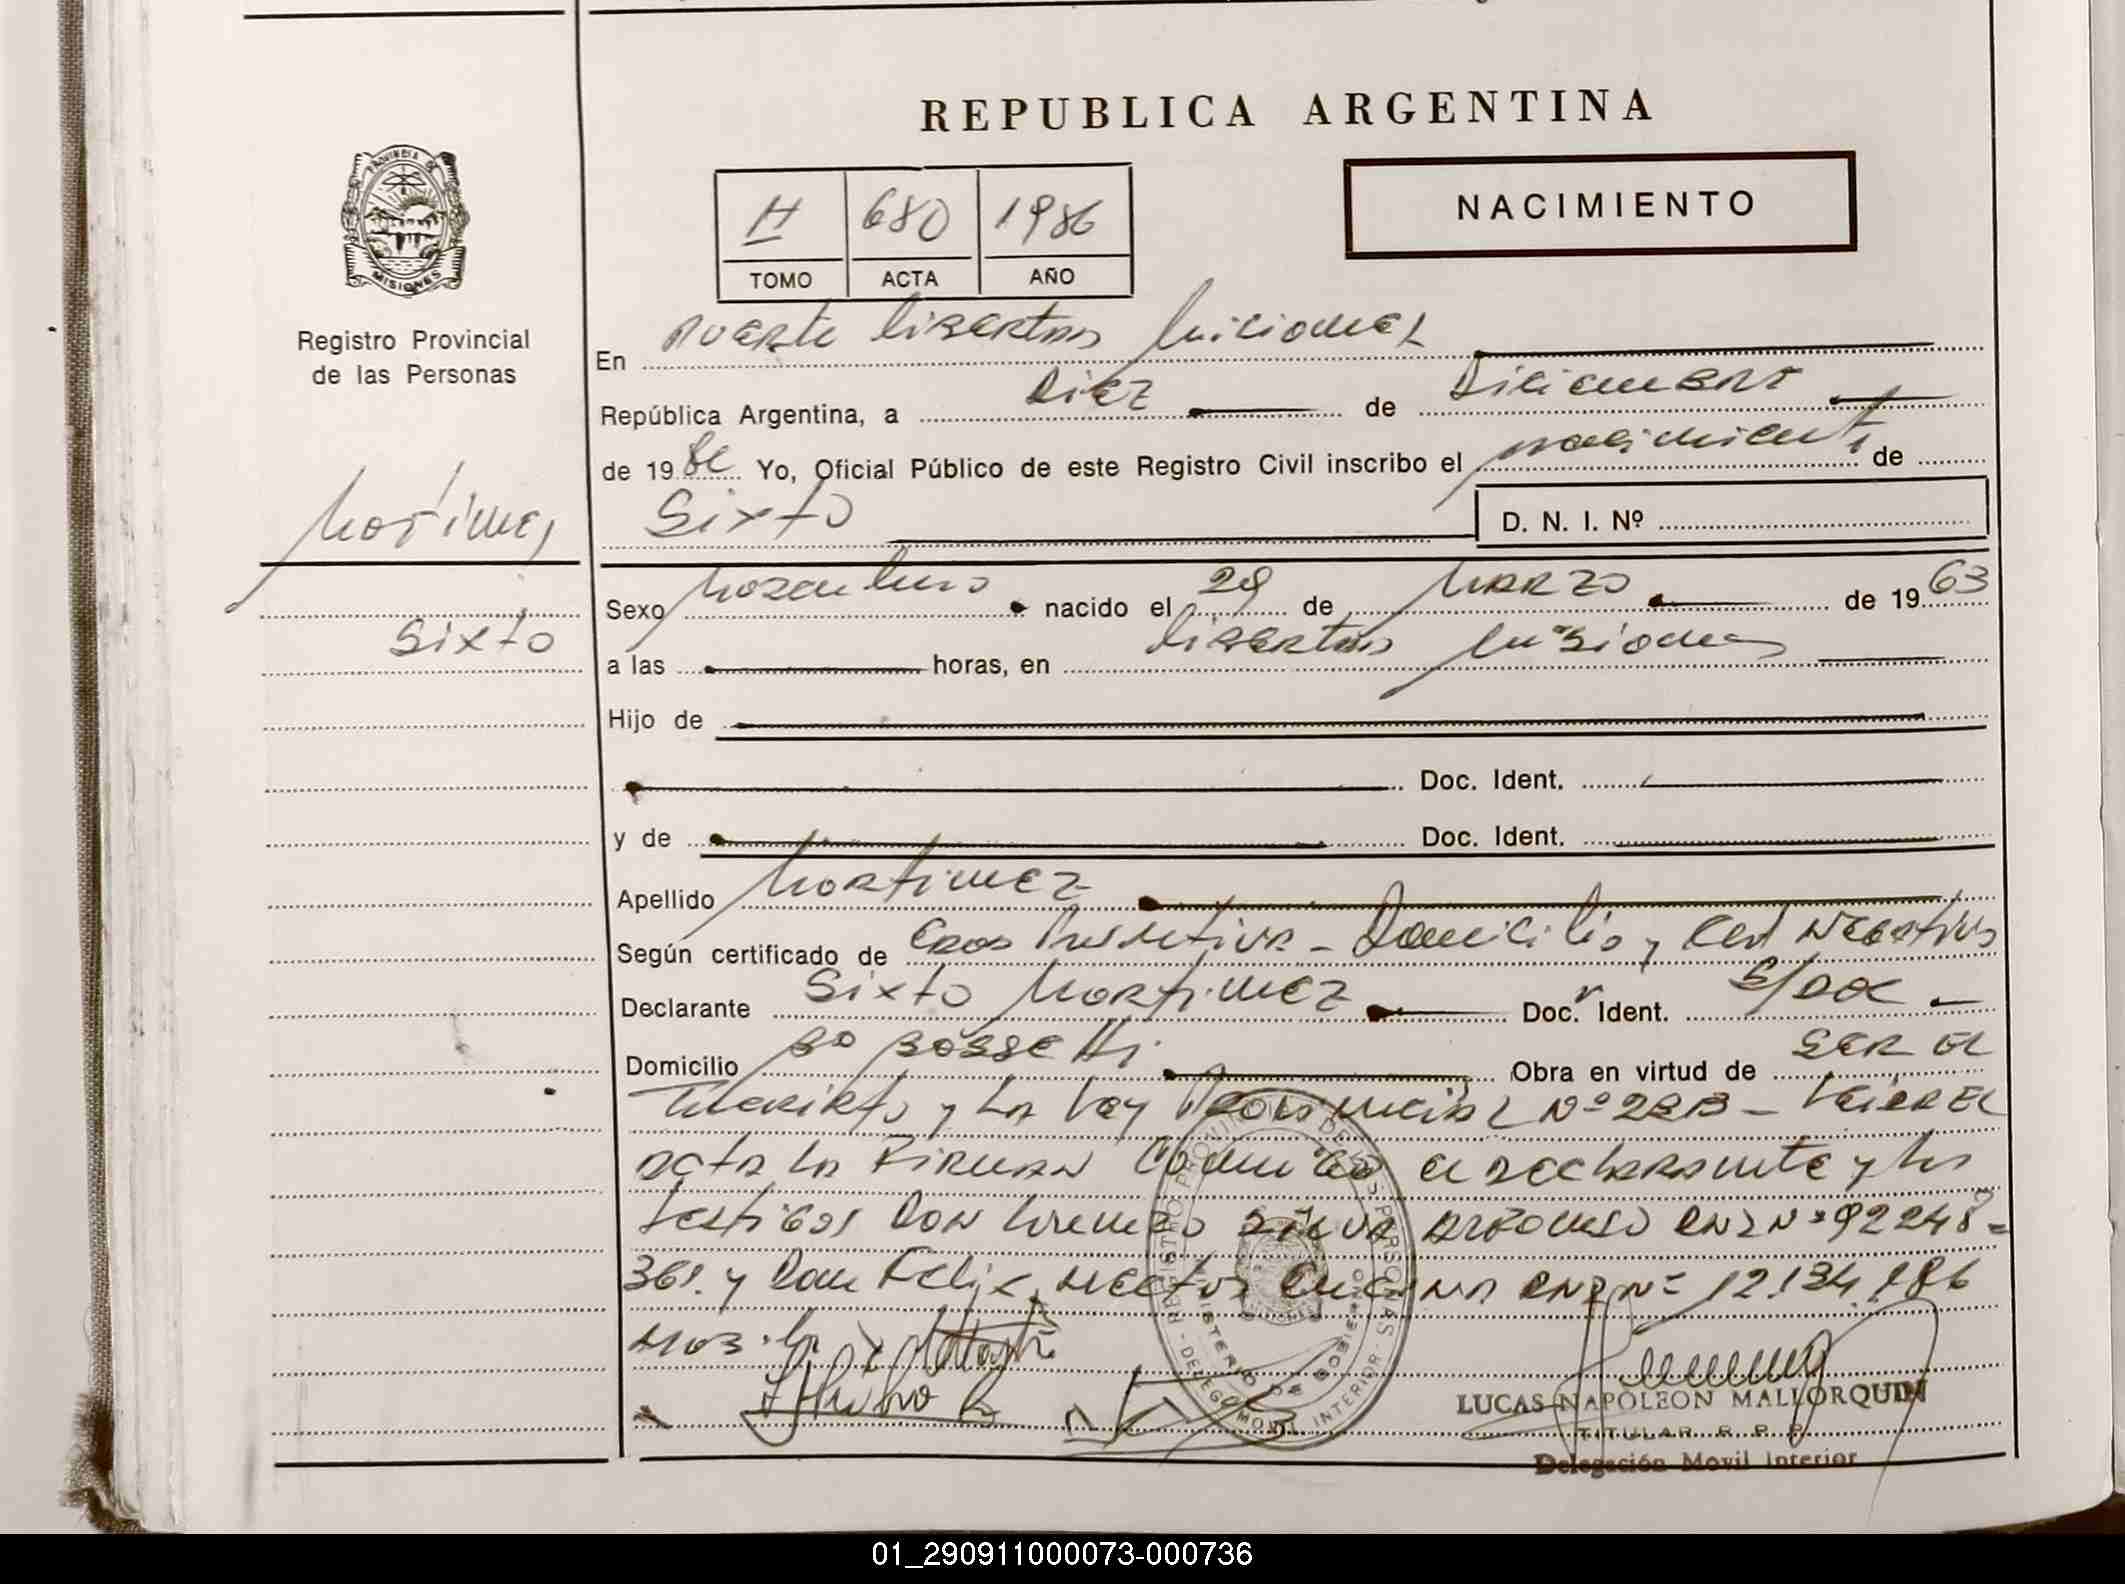 REPUBLICA ARGENTINA
PROVINCIA DE
MISIONES
H 680 1986
TOMO ACTA AÑO
NACIMIENTO
Registro Provincial
de las Personas
Martinez
Sixto
En Puerto Libertad Misiones
República Argentina, a Diez de Diciembre
de 1986 Yo, Oficial Público de este Registro Civil inscribo el nacimiento de
Sixto D. N. I. Nº
Sexo Masculino nacido el 29 de Marzo de 1963
a las horas, en Libertad Misiones
Hijo de
Doc. Ident.
y de Doc. Ident.
Apellido Martinez
Según certificado de Domicilio y Negativo
Declarante Sixto Martinez Doc. Ident. S/Doc
Domicilio Bº Rossetti Obra en virtud de ser el
y la Ley Provincial Nº
acta la firman conmigo el declarante y los
testigos Don Lorenzo Silva DNI Nº 92248=
361 y Don Felix Hector DNI Nº 12.134.186
REGISTRO PROVINCIAL DE LAS PERSONAS
MINISTERIO DE GOBIERNO
DELEG. MOVIL INTERIOR
LUCAS NAPOLEON MALLORQUIN
TITULAR R. P. P.
Delegación Movil Interior
01_290911000073-000736